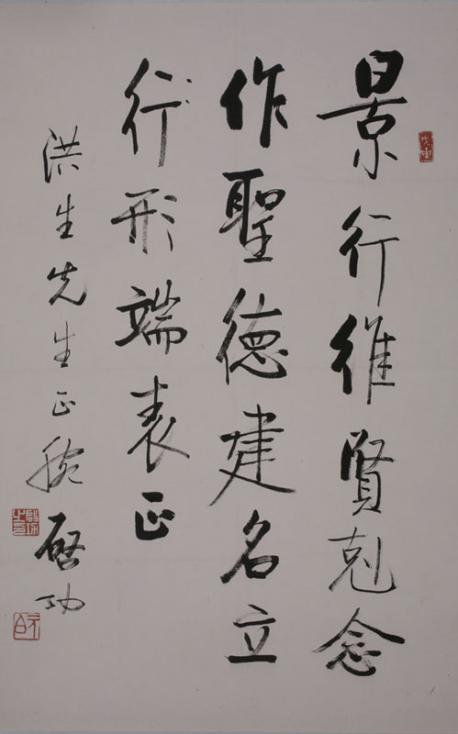 景行維賢剋念
作聖德建名立
行形端表正
洪生先生正腕 啓功